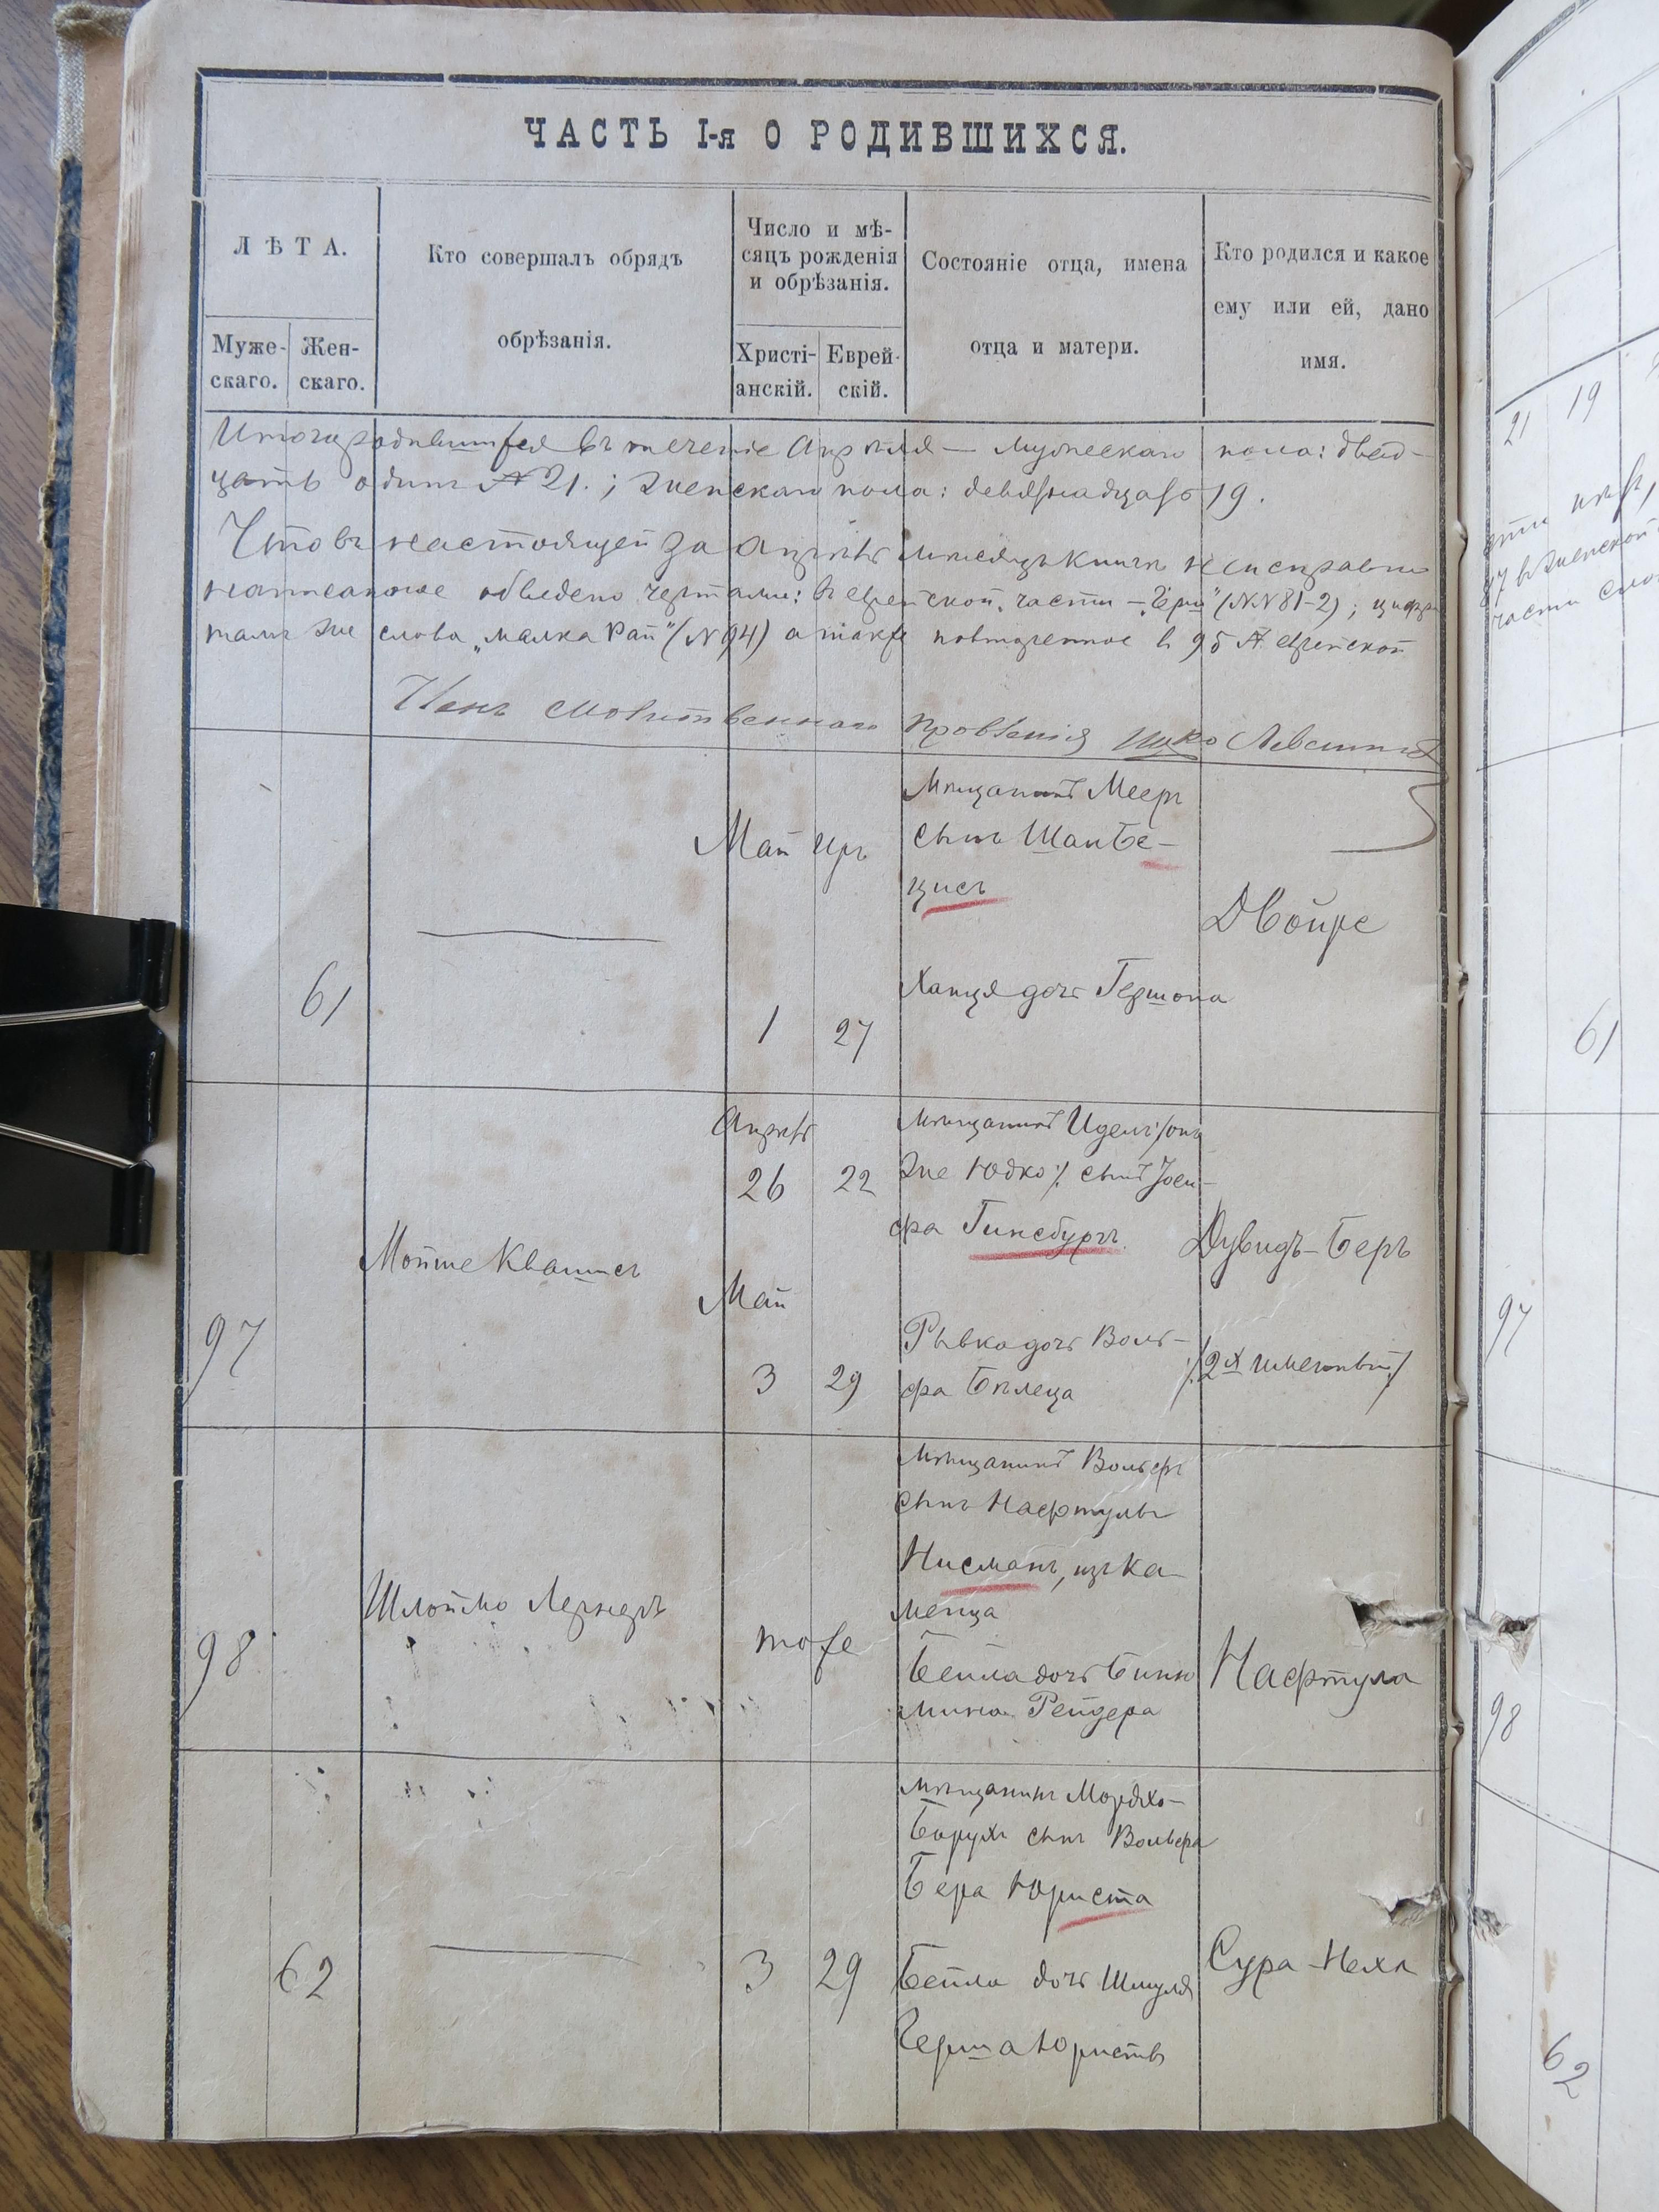 ЧАСТЬ I-я О РОДИВШИХСЯ.
ЛѢТА.
Муже-
скаго.
Жен-
скаго.
Кто совершалъ обрядъ
обрѣзанія.
Число и мѣ-
сяцъ рожденія
и обрѣзанія.
Христі-
анскій.
Еврей-
скій.
Состояніе отца, имена
отца и матери.
Кто родился и какое
ему или ей, дано
имя.
Итого родившихся въ теченіе Апрѣля — мужескаго пола: двад-
цать одинъ № 21.; женскаго пола: девятнадцать 19.
Что въ настоящей за Апрѣль мѣсяцъ книгѣ неисправно
написанное обведено чертами: въ еврейской части — (№№ 81-2);
слова „малка Рай" (№ 94) а также повторенное в 95 № еврейской
Членъ Молитвеннаго Правленія Ицко
61
Май Иръ
1 27
Мѣщанинъ Меер
сынъ Шаи Бе-
цисъ
Ханця дочь Гершона
Двойре
97
Мойше Квашисъ
Апрѣль
26 22
Май
3 29
Мѣщанинъ Идель /:онъ
же Юдко:/ сынъ Іоси-
фа Гинсбургъ
Рывка дочь Воль-
фа Бѣлеца
Дувидъ-Беръ
/:2х именный:/
98
Шлоймо Лернеръ
тоже
Мѣщанинъ Вольфъ
сынъ Нафтулы
Нисманъ, изъ Ка-
менца
Бейла дочь Биню
мина Рейдера
Нафтула
62
3 29
Мѣщанинъ Мордхо-
Борухъ сынъ Вольфа
Бера Юриста
Бейла дочь Шмуля
Герша Юристъ
Сура-Неха
21 19
61
97
98
62